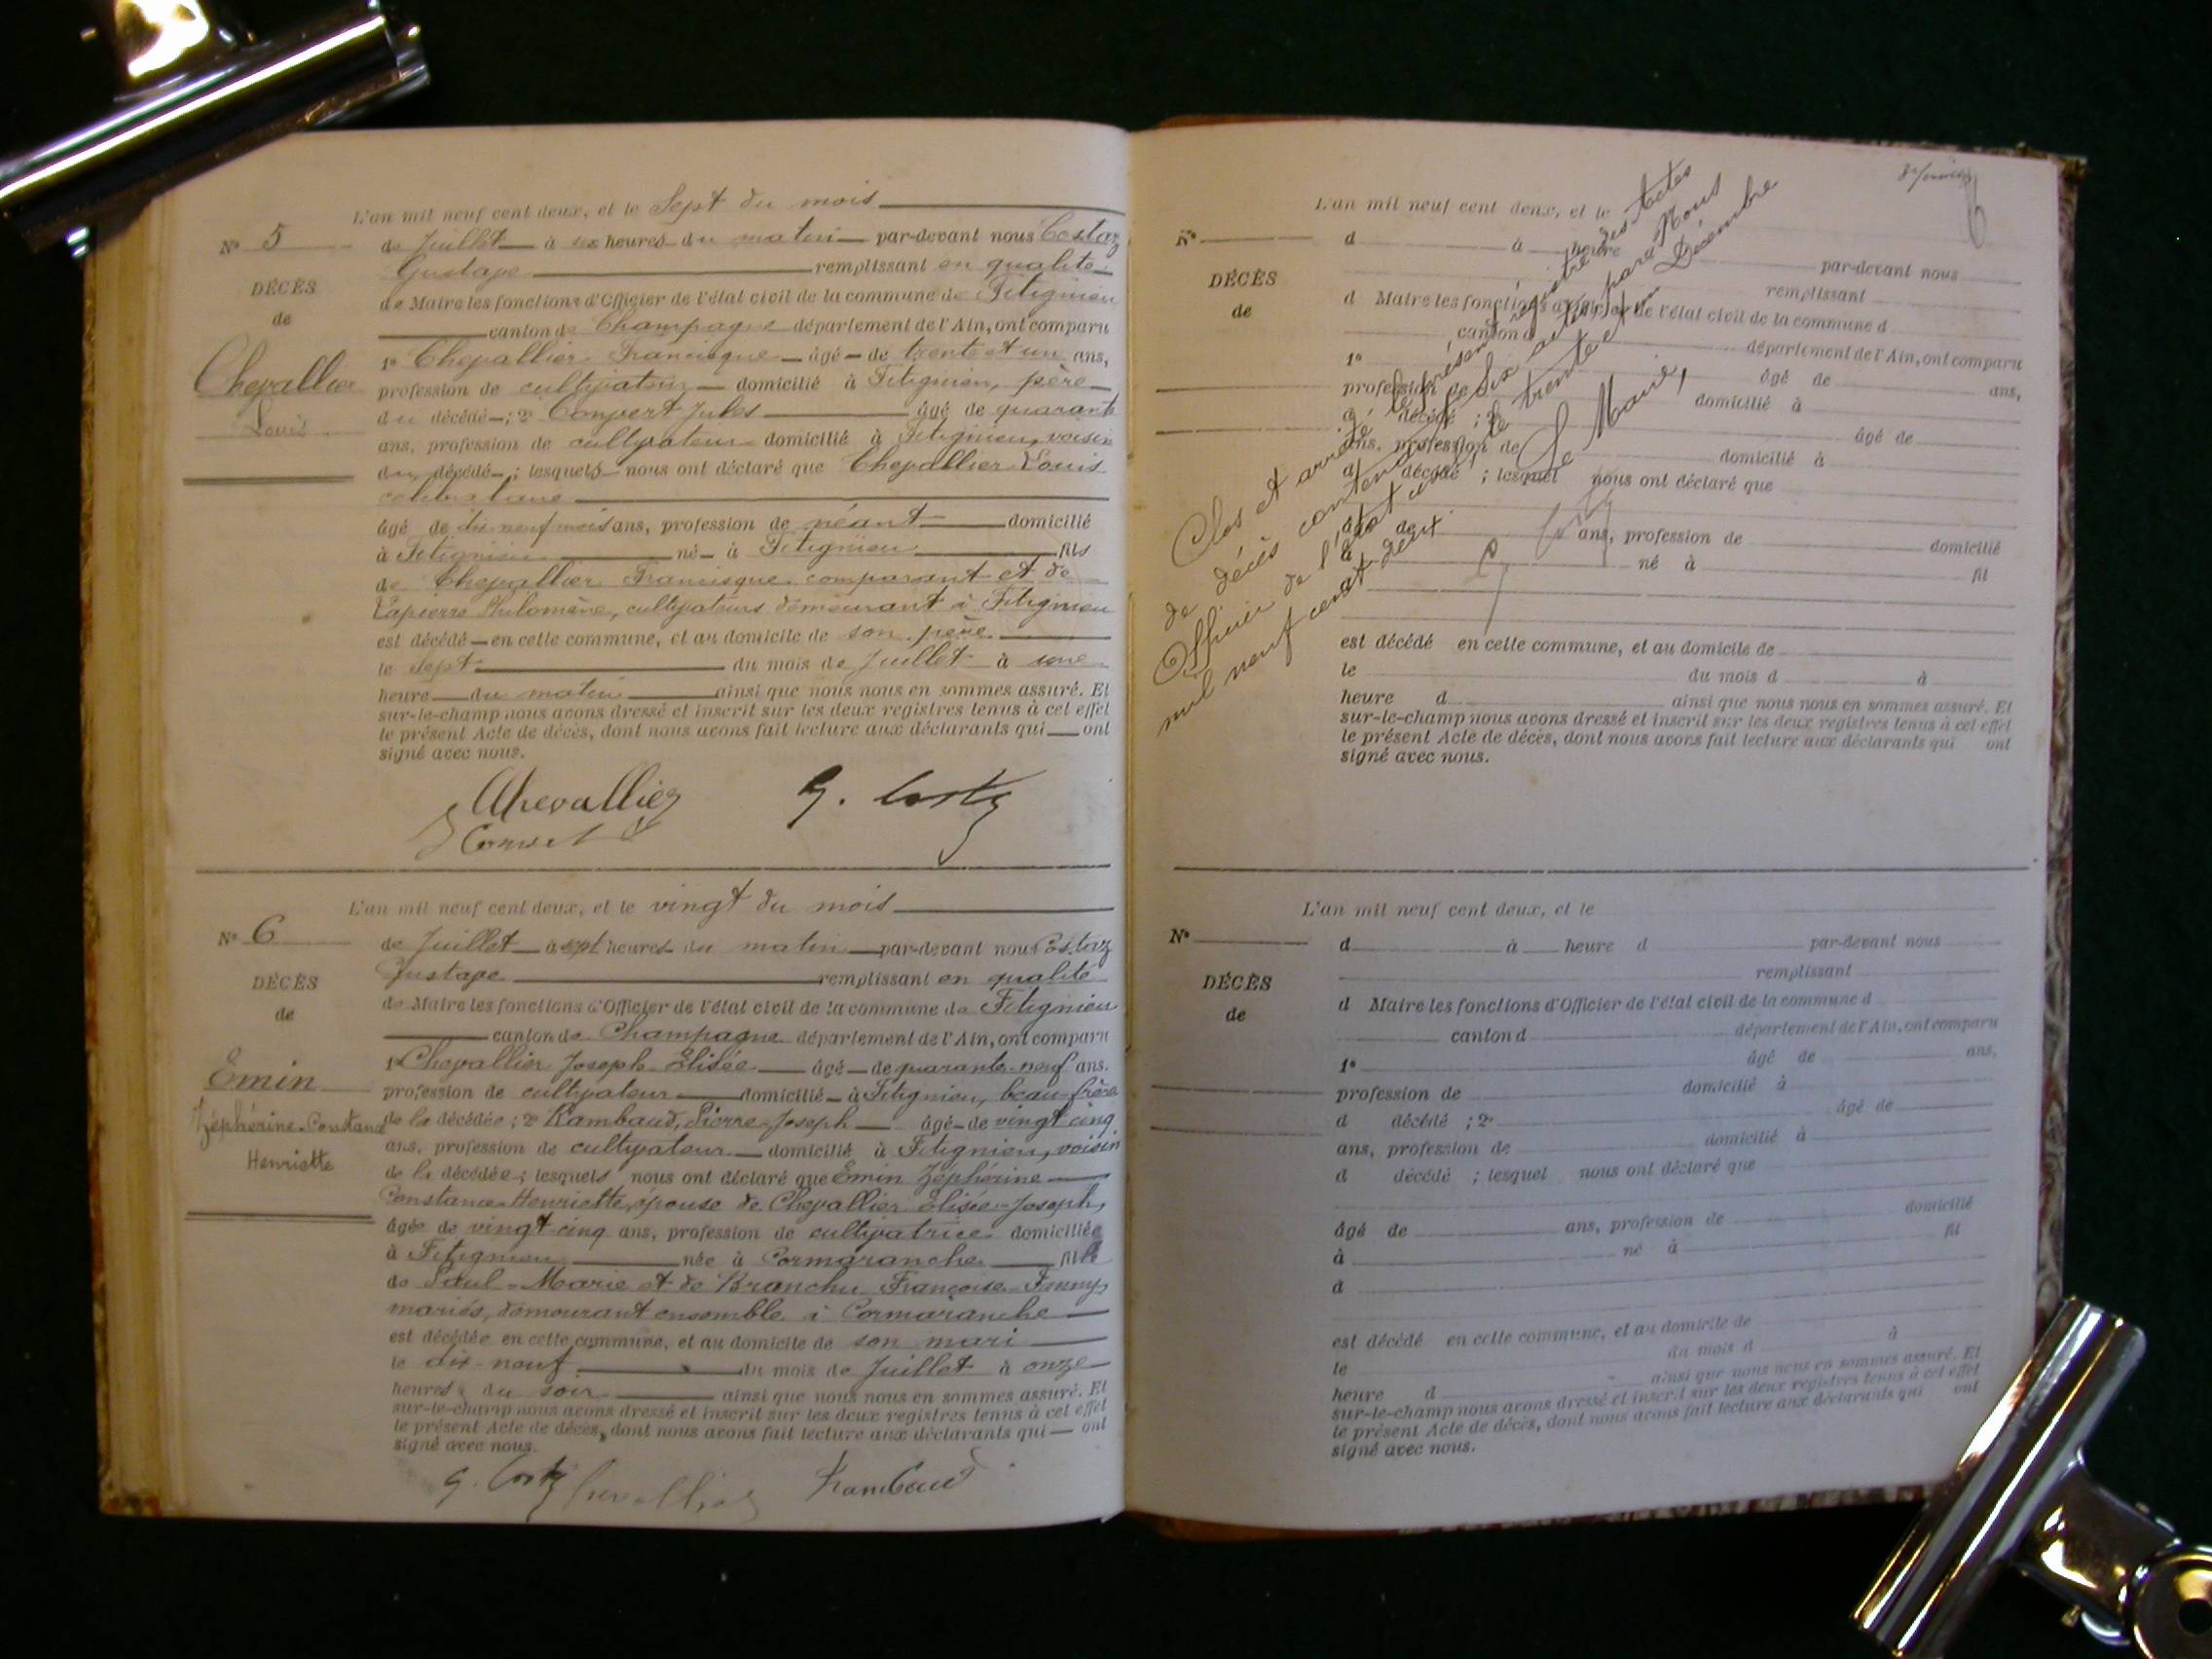 L'an mil neuf cent deux, et le Sept du mois
N° 5
de Juillet à six heures du matin par-devant nous Costaz
Gustave remplissant en qualité
DÉCÈS
de Maire les fonctions d'Officier de l'état civil de la commune de Fitignieu
de
canton de Champagne département de l'Ain, ont comparu
1° Chevallier Francisque âgé de trente et un ans,
Chevallier
profession de cultivateur domicilié à Fitignieu, père
Louis
du décédé ; 2° Convert Jules âgé de quarante
ans, profession de cultivateur domicilié à Fitignieu, voisin
du décédé ; lesquels nous ont déclaré que Chevallier Louis
célibataire
âgé de dix neuf mois ans, profession de néant domicilié
à Fitignieu né à Fitignieu fils
de Chevallier Francisque comparant et de
Lapierre Philomène, cultivateurs demeurant à Fitignieu
est décédé en cette commune, et au domicile de son père
le sept du mois de Juillet à une
heure du matin ainsi que nous nous en sommes assuré. Et
sur-le-champ nous avons dressé et inscrit sur les deux registres tenus à cet effet
le présent Acte de décès, dont nous avons fait lecture aux déclarants qui ont
signé avec nous.
Chevallier G. Costaz
Convert
L'an mil neuf cent deux, et le vingt du mois
N° 6
de Juillet à sept heures du matin par-devant nous Costaz
Gustave remplissant en qualité
DÉCÈS
de Maire les fonctions d'Officier de l'état civil de la commune de Fitignieu
de
canton de Champagne département de l'Ain, ont comparu
1° Chevallier Joseph Elisée âgé de quarante-neuf ans.
Emin
profession de cultivateur domicilié à Fitignieu, beau-frère
Zéphérine-Constance
de la décédée ; 2° Rambaud, Pierre-Joseph âgé de vingt cinq
ans, profession de cultivateur domicilié à Fitignieu, voisin
Henriette
de la décédée ; lesquels nous ont déclaré que Emin Zéphérine
Constance-Henriette, épouse de Chevallier Elisée-Joseph,
âgée de vingt-cinq ans, profession de cultivatrice domiciliée
à Fitignieu née à Cormaranche fille
de Paul-Marie et de Branchu Françoise-Fanny
mariés, demeurant ensemble à Cormaranche
est décédée en cette commune, et au domicile de son mari
le dix-neuf du mois de Juillet à onze
heures du soir ainsi que nous nous en sommes assuré. Et
sur-le-champ nous avons dressé et inscrit sur les deux registres tenus à cet effet
le présent Acte de décès, dont nous avons fait lecture aux déclarants qui ont
signé avec nous.
G. Costaz Chevallier Rambaud
L'an mil neuf cent deux, et le
N°
d à heure d par-devant nous
remplissant
DÉCÈS
d Maire les fonctions d'Officier de l'état civil de la commune d
de
, canton d département de l'Ain, ont comparu
1° âgé de ans,
profession de domicilié à
d décédé ; 2° âgé de
ans, profession de domicilié à
d décédé ; lesquel nous ont déclaré que
âgé de ans, profession de domicilié
à né à fil
d
est décédé en cette commune, et au domicile de
le du mois d à
heure d ainsi que nous nous en sommes assuré. Et
sur-le-champ nous avons dressé et inscrit sur les deux registres tenus à cet effet
le présent Acte de décès, dont nous avons fait lecture aux déclarants qui ont
signé avec nous.
Clos et arrêté le présent registre des actes
de décès contenant Six actes par Nous
Officier de l'état civil, le trente et un Décembre
mil neuf cent deux
Le Maire,
L'an mil neuf cent deux, et le
N°
d à heure d par-devant nous
remplissant
DÉCÈS
d Maire les fonctions d'Officier de l'état civil de la commune d
de
canton d département de l'Ain, ont comparu
1° âgé de ans.
profession de domicilié à
d décédé ; 2° âgé de
ans, profession de domicilié à
d décédé ; lesquel nous ont déclaré que
âgé de ans, profession de domicilié
à né à fil
d
est décédé en cette commune, et au domicile de
le du mois d à
heure d ainsi que nous nous en sommes assuré. Et
sur-le-champ nous avons dressé et inscrit sur les deux registres tenus à cet effet
le présent Acte de décès, dont nous avons fait lecture aux déclarants qui ont
signé avec nous.